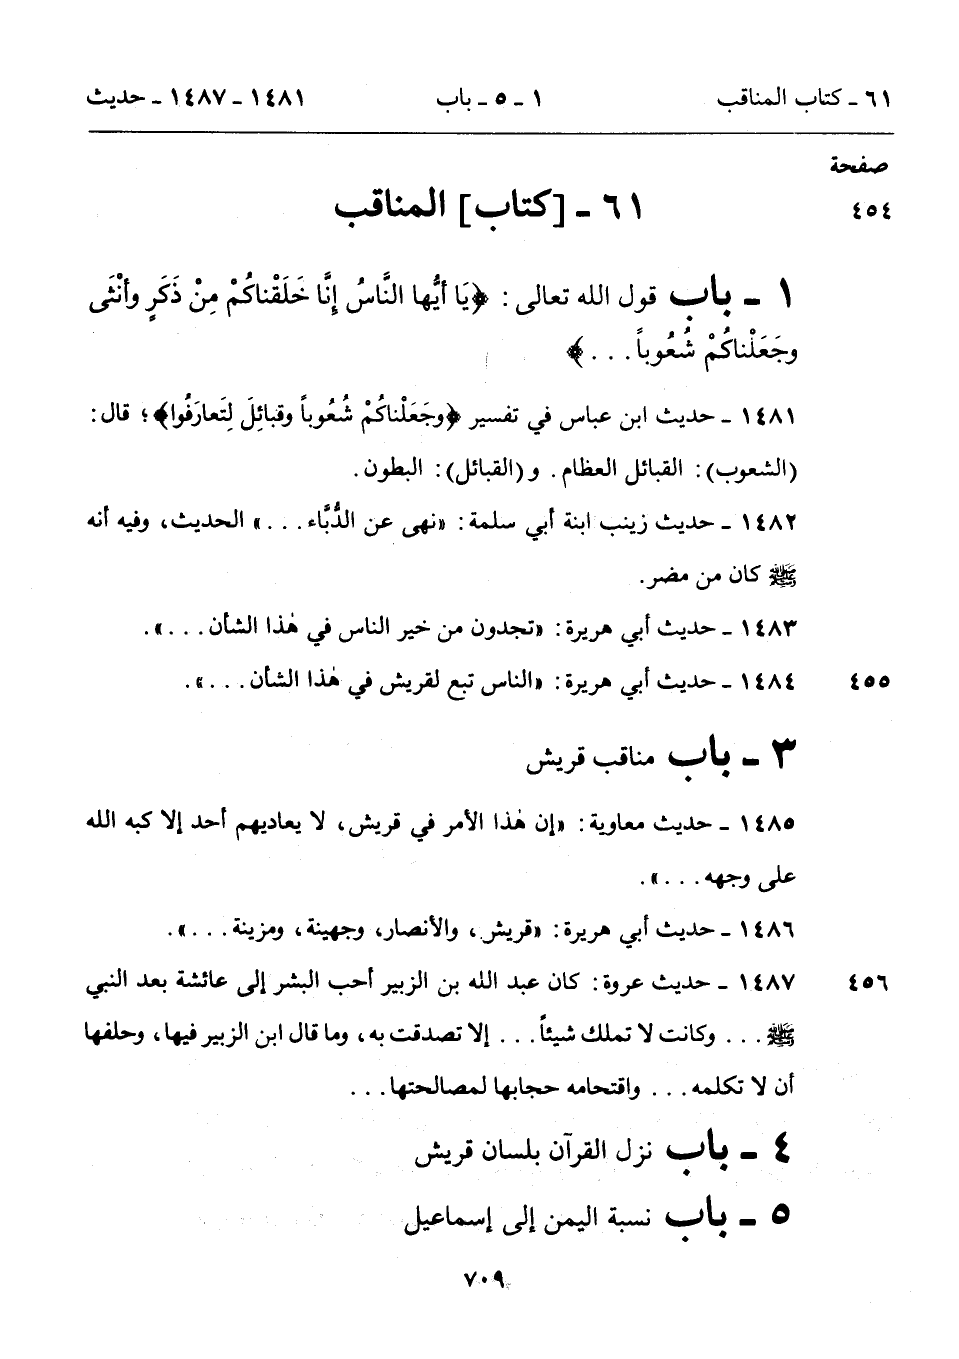 ٦١ - كتاب المناقب ١ - ٥ - باب ١٤٨١ - ١٤٨٧ - حديث
صفحة
٤٥٤ ٦١ - [كتاب] المناقب
١ - باب قول الله تعالى: ﴿يَا أيُّها النَّاسُ إنَّا خَلَقْناكُمْ مِنْ ذَكَرٍ وأنْثَى
وجَعَلْناكُمْ شُعُوباً . . .﴾
١٤٨١ - حديث ابن عباس في تفسير ﴿وجَعَلْناكُمْ شُعُوباً وقبائلَ لِتَعارَفُوا﴾؛ قال:
(الشعوب): القبائل العظام. و(القبائل): البطون.
١٤٨٢ - حديث زينب ابنة أبي سلمة: «نهى عن الدُّبَّاء . . .» الحديث، وفيه أنه
ﷺ كان من مضر.
١٤٨٣ - حديث أبي هريرة: «تجدون من خير الناس في هٰذا الشأن . . .».
٤٥٥ ١٤٨٤ - حديث أبي هريرة: «الناس تبع لقريش في هٰذا الشأن . . .».
٣ - باب مناقب قريش
١٤٨٥ - حديث معاوية: «إن هٰذا الأمر في قريش، لا يعاديهم أحد إلا كبه الله
على وجهه . . .».
١٤٨٦ - حديث أبي هريرة: «قريش، والأنصار، وجهينة، ومزينة . . .».
٤٥٦ ١٤٨٧ - حديث عروة: كان عبد الله بن الزبير أحب البشر إلى عائشة بعد النبي
ﷺ . . . وكانت لا تملك شيئاً . . . إلا تصدقت به، وما قال ابن الزبير فيها، وحلفها
أن لا تكلمه . . . واقتحامه حجابها لمصالحتها . . .
٤ - باب نزل القرآن بلسان قريش
٥ - باب نسبة اليمن إلى إسماعيل
٧٠٩